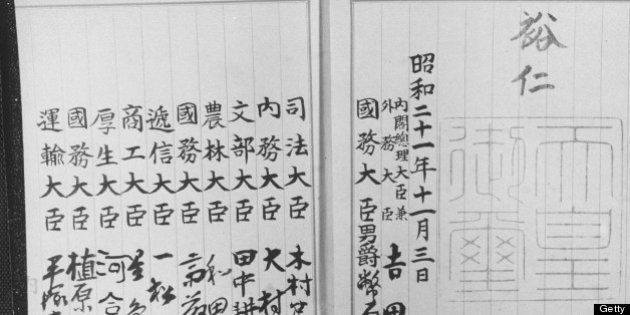 裕仁
天皇
御璽
昭和二十一年十一月三日
内閣總理大臣兼
外務大臣 吉田
國務大臣男爵幣
司法大臣 木村
内務大臣 大村
文部大臣 田中耕
農林大臣 和田
國務大臣
遞信大臣 一松
商工大臣 星
厚生大臣 河合
國務大臣 植原
運輸大臣 平塚
Getty